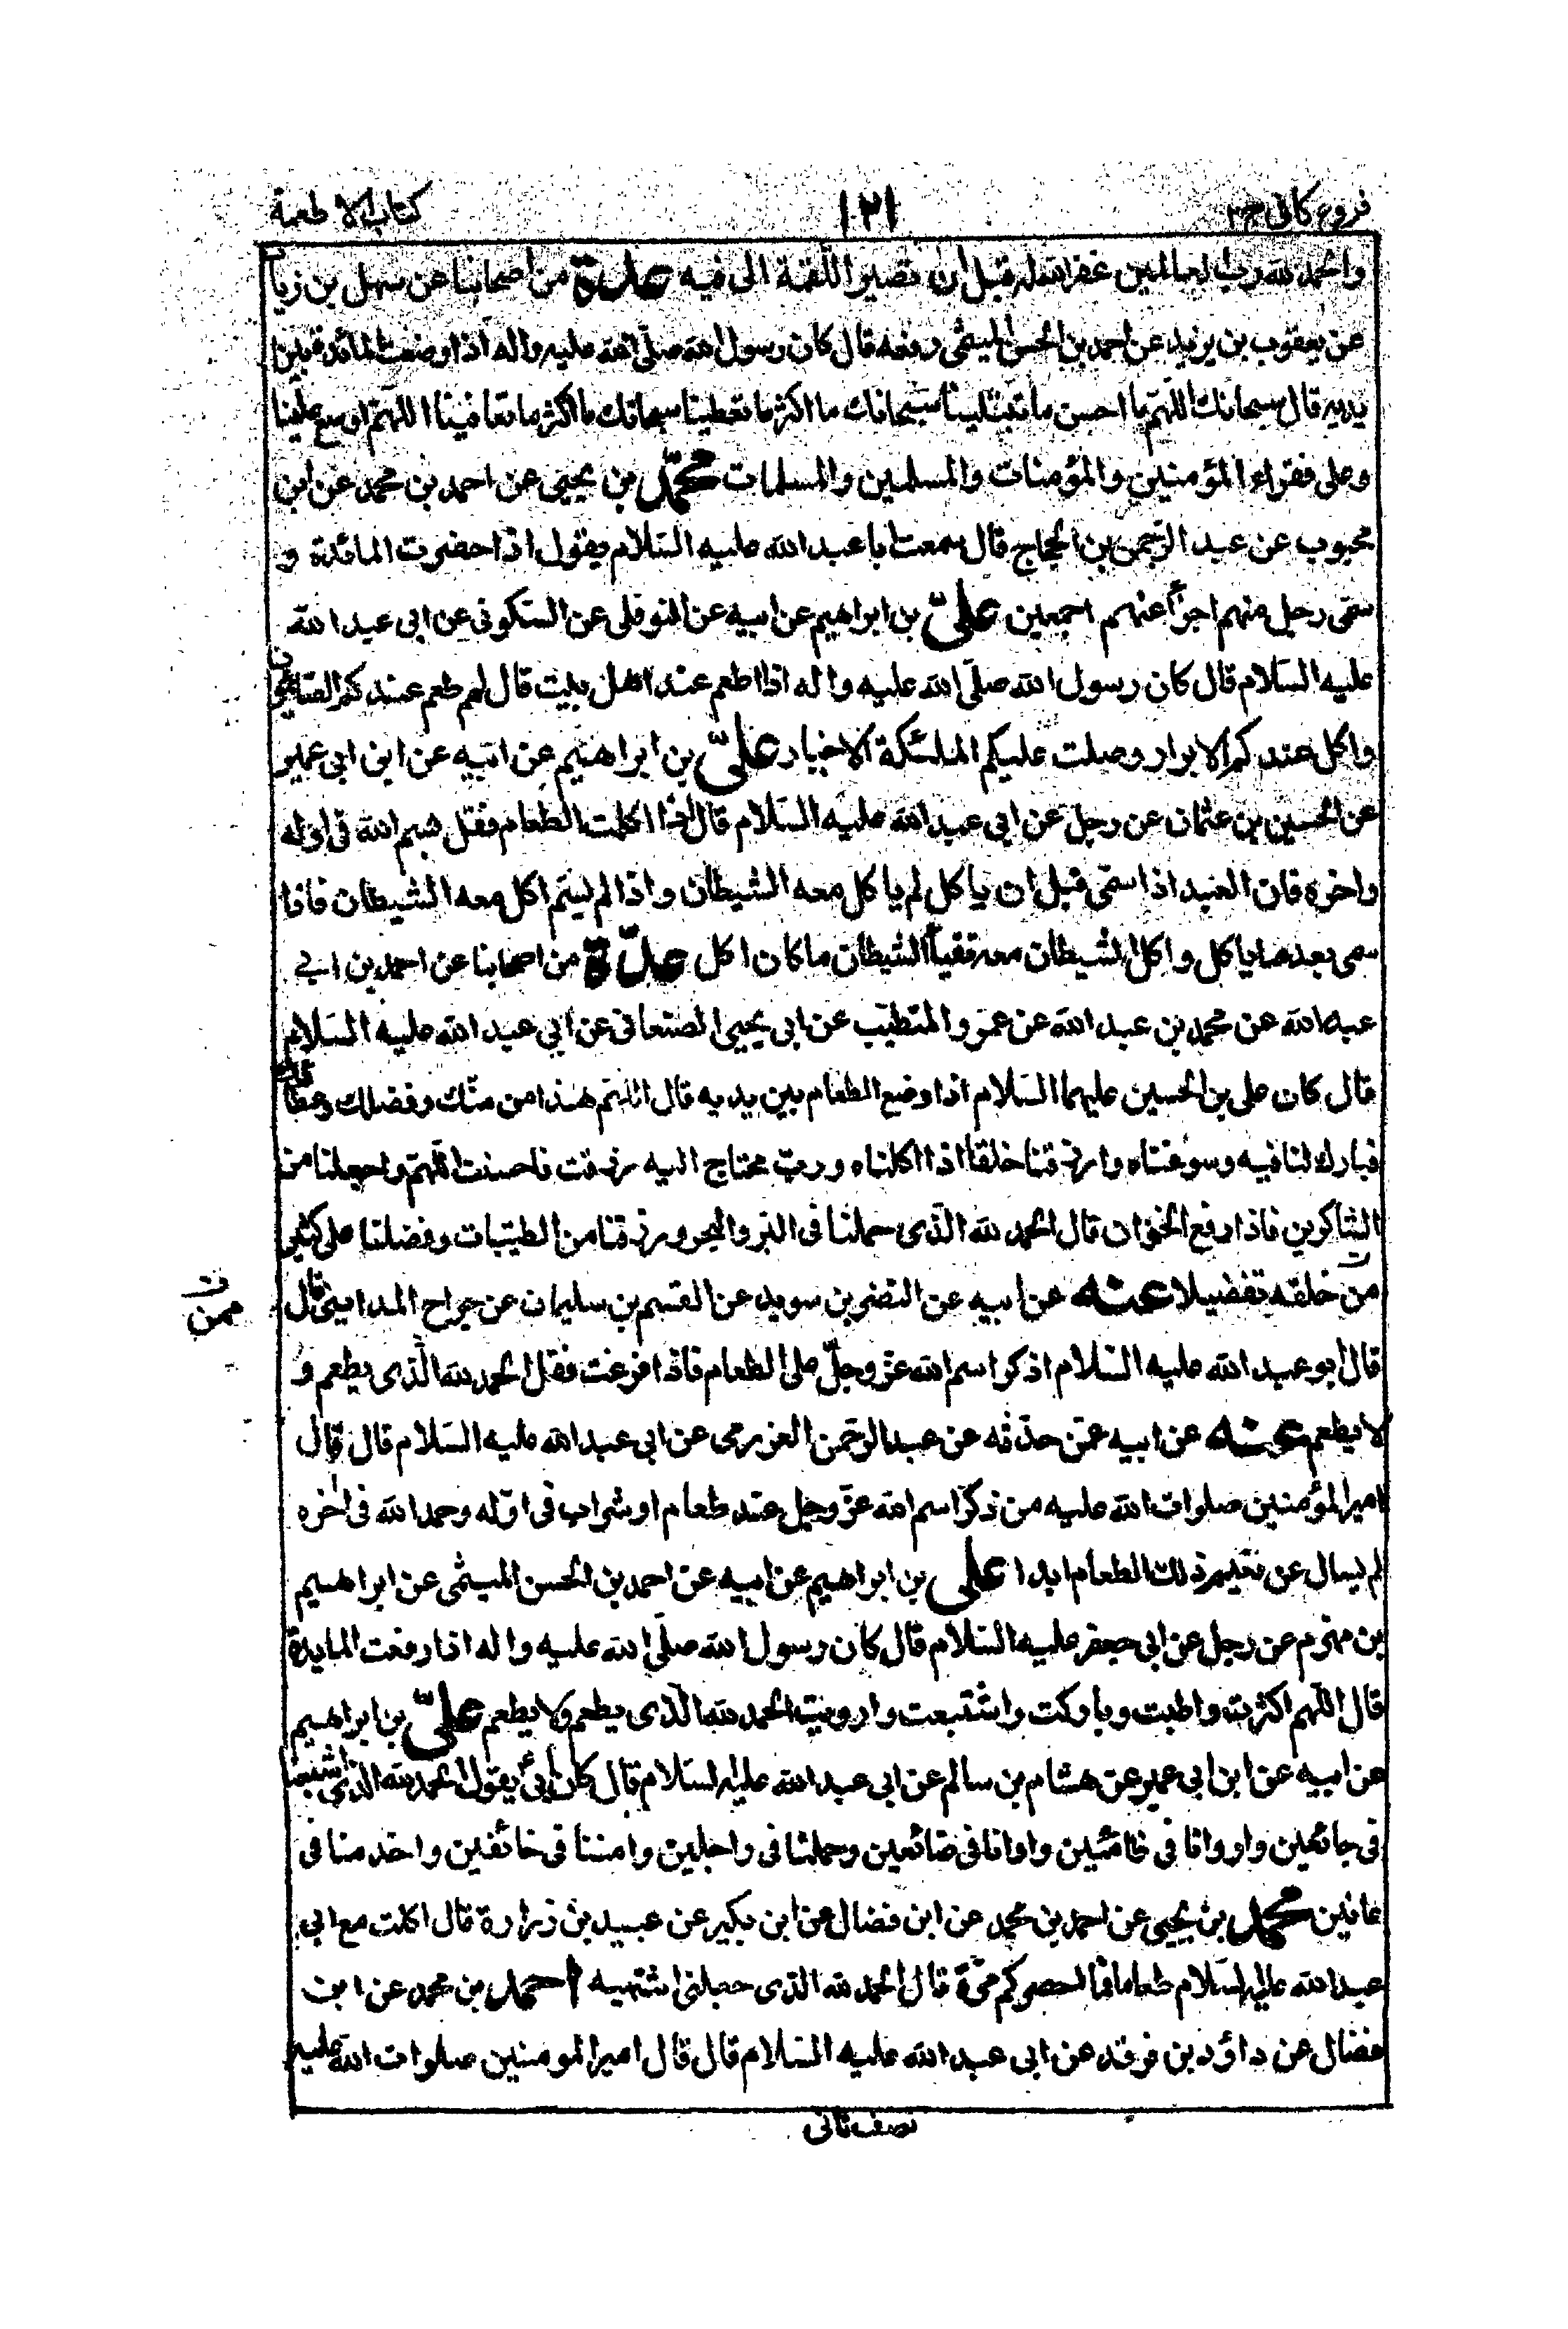 فروع كافى ج٢
١٢١
كتاب الاطعمة
والحمد لله رب العالمين غفر الله له قبل ان تصير اللقمة الى فيه عدة من اصحابنا عن سهل بن زياد
عن يعقوب بن يزيد عن احمد بن الحسن الميثمى رفعه قال كان رسول الله صلى الله عليه واله اذا وضعت المائدة بين
يديه قال سبحانك اللهم ما احسن ما تبتلينا سبحانك ما اكثر ما تعطينا سبحانك ما اكثر ما تعافينا اللهم اوسع علينا
وعلى فقراء المؤمنين والمؤمنات والمسلمين والمسلمات محمد بن يحيى عن احمد بن محمد عن ابن
محبوب عن عبد الرحمن بن الحجاج قال سمعت ابا عبد الله عليه السلام يقول اذا حضرت المائدة و
سمى رجل منهم اجزأ عنهم اجمعين على بن ابراهيم عن ابيه عن النوفلى عن السكونى عن ابى عبد الله
عليه السلام قال كان رسول الله صلى الله عليه واله اذا اطعم عند اهل بيت قال لهم طعم عندكم الصائمون
واكل عندكم الابرار وصلت عليكم الملئكة الاخيار على بن ابراهيم عن ابيه عن ابن ابى عمير
عن الحسين بن عثمان عن رجل عن ابى عبد الله عليه السلام قال اذا اكلت الطعام فقل بسم الله فى اوله
واخره فان العبد اذا سمى قبل ان ياكل لم ياكل معه الشيطان واذا لم يسم اكل معه الشيطان فاذا
سمى بعد ما ياكل واكل الشيطان معه تقيأ الشيطان ما كان اكل عدة من اصحابنا عن احمد بن ابى
عبد الله عن محمد بن عبد الله عن عمرو المتطبب عن ابى يحيى الصنعانى عن ابى عبد الله عليه السلام
قال كان على بن الحسين عليهما السلام اذا وضع الطعام بين يديه قال اللهم هذا من منك وفضلك وعطائك
فبارك لنا فيه وسوغناه وارزقنا خلفا اذا اكلناه ورب محتاج اليه رزقت فاحسنت اللهم واجعلنا من
الشاكرين فاذا رفع الخوان قال الحمد لله الذى حملنا فى البر والبحر ورزقنا من الطيبات وفضلنا على كثير
من خلقه تفضيلا عنه عن ابيه عن النضر بن سويد عن القسم بن سليمان عن جراح المداينى قال
ممن
قال ابو عبد الله عليه السلام اذكر اسم الله عز وجل على الطعام فاذا فرغت فقل الحمد لله الذى يطعم و
لا يطعم عنه عن ابيه عمن حدثه عن عبد الرحمن العزرمى عن ابى عبد الله عليه السلام قال قال
امير المؤمنين صلوات الله عليه من ذكر اسم الله عز وجل عند طعام او شراب فى اوله وحمد الله فى اخره
لم يسال عن نعيم ذلك الطعام ابدا على بن ابراهيم عن ابيه عن احمد بن الحسن الميثمى عن ابراهيم
بن مهزم عن رجل عن ابى جعفر عليه السلام قال كان رسول الله صلى الله عليه واله اذا رفعت المايدة
قال اللهم اكثرت واطبت وباركت واشبعت وارويت الحمد لله الذى يطعم ولا يطعم على بن ابراهيم
عن ابيه عن ابن ابى عمير عن هشام بن سالم عن ابى عبد الله عليه السلام قال كان ابى يقول الحمد لله الذى اشبعنا
فى جائعين واروانا فى ظامئين واوانا فى ضائعين وحملنا فى راجلين وامننا فى خائفين واخدمنا فى
عانين محمد بن يحيى عن احمد بن محمد عن ابن فضال عن ابن بكير عن عبيد بن زرارة قال اكلت مع ابى
عبد الله عليه السلام طعاما فما احصى كم مرة قال الحمد لله الذى جعلنى اشتهيه احمد بن محمد عن ابن
فضال عن داؤد بن فرقد عن ابى عبد الله عليه السلام قال قال امير المومنين صلوات الله عليه
نصف ثانى